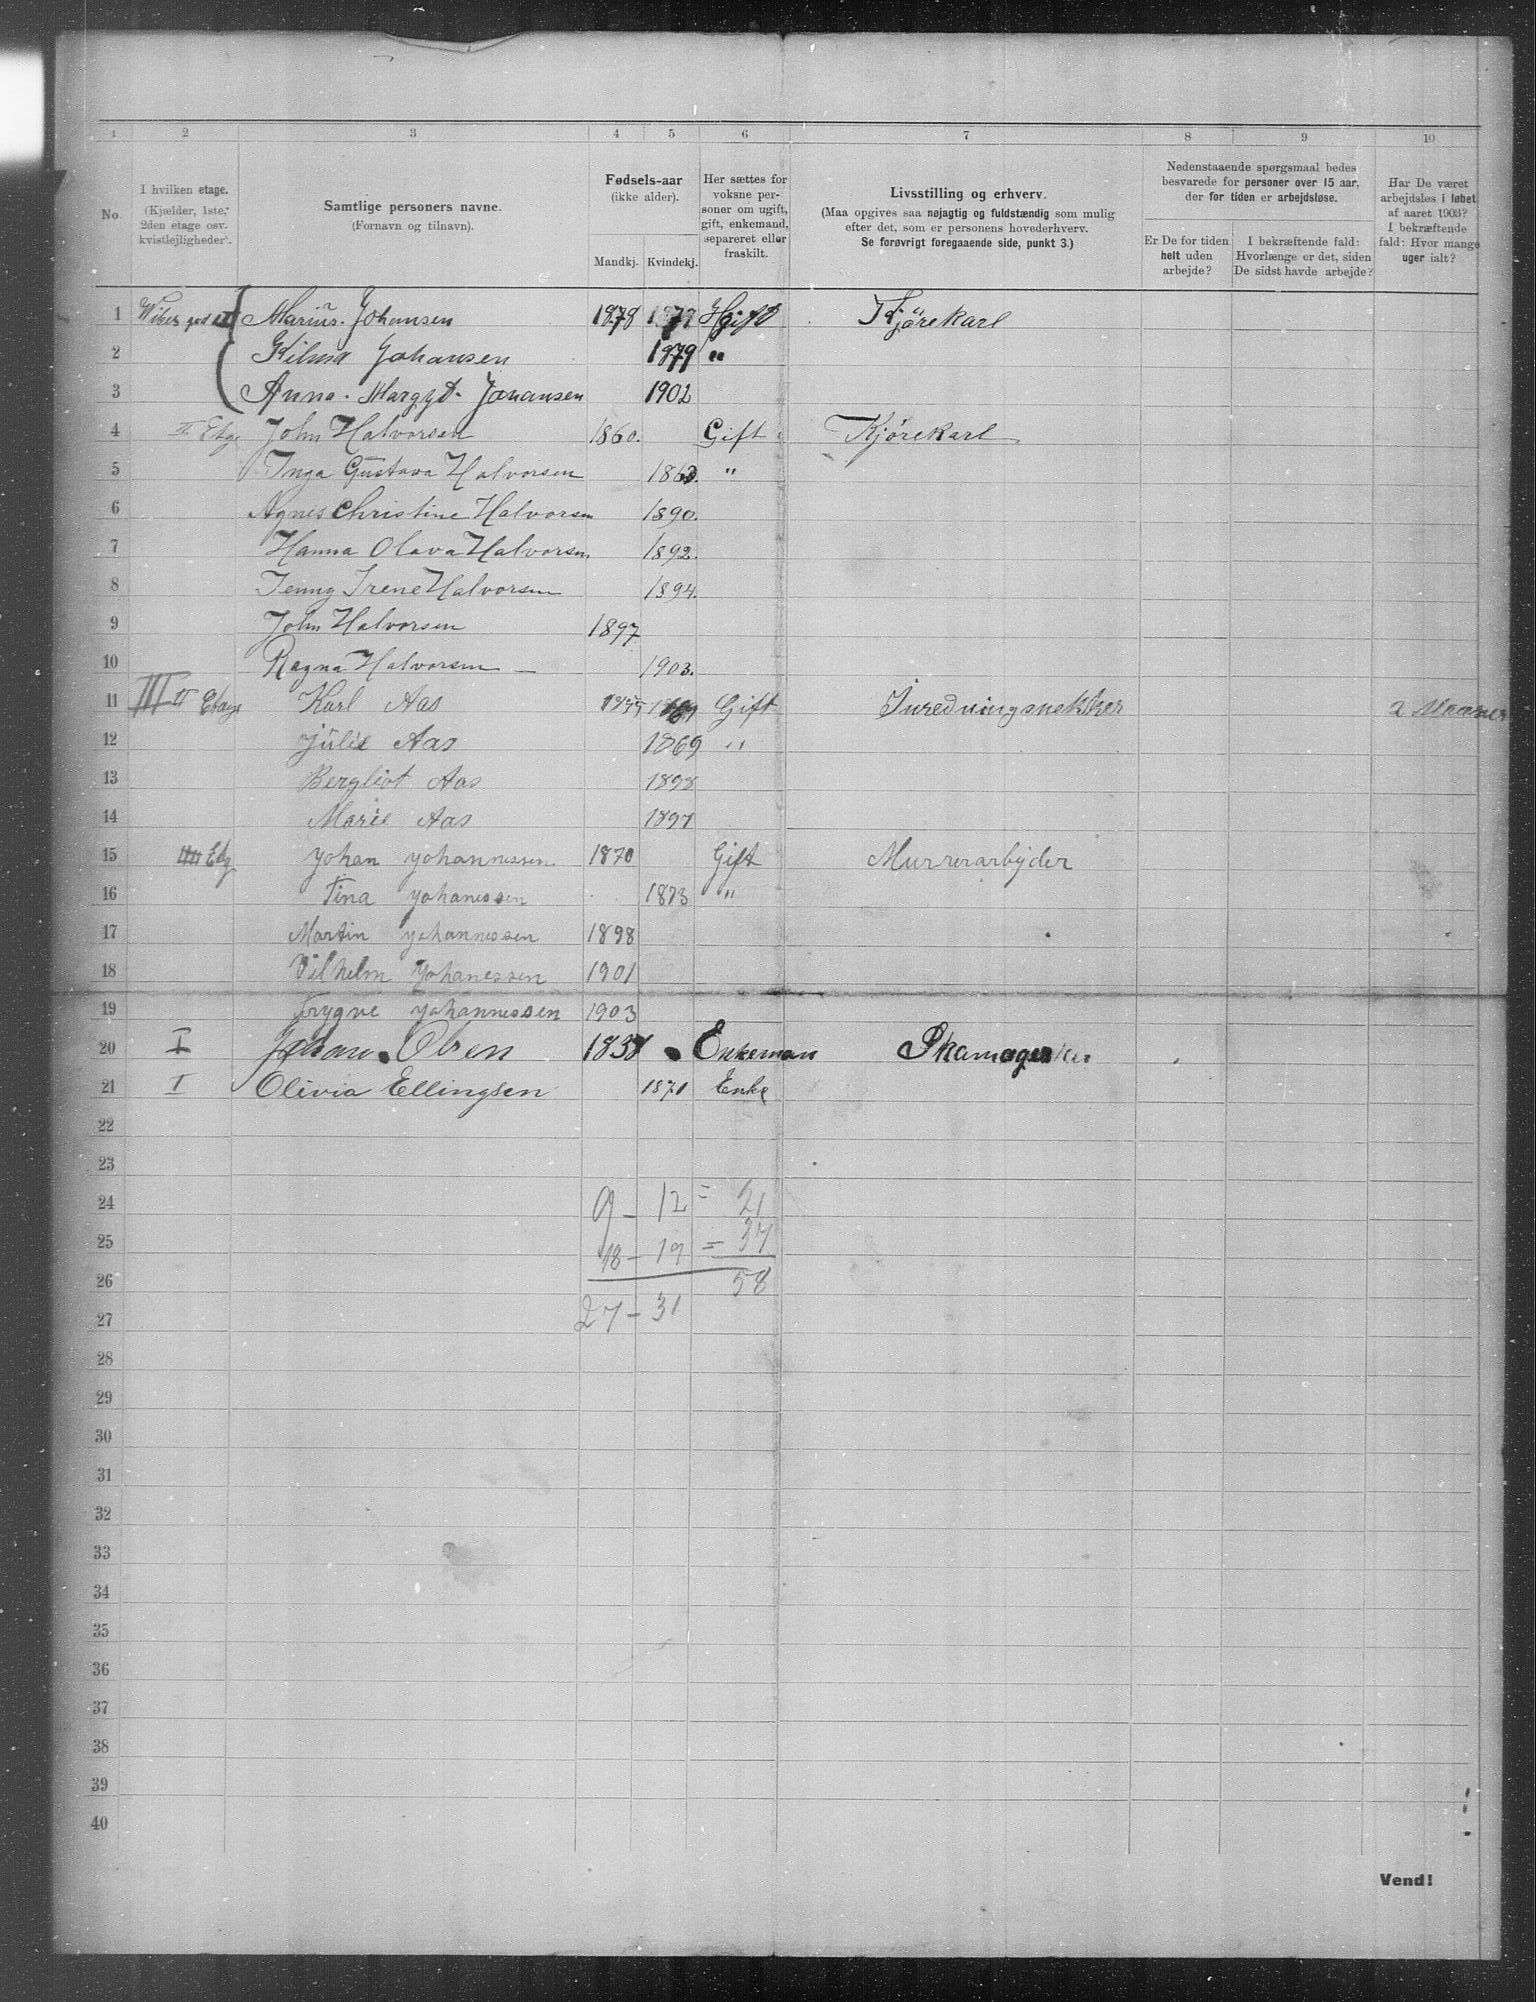 1 2 3 4 5 6 7 8 9 10
No.
I hvilken etage.
(Kjælder, 1ste,
2den etage osv.
kvistlejligheder).
Samtlige personers navne.
(Fornavn og tilnavn).
Fødsels-aar
(ikke alder).
Mandkj. Kvindekj.
Her sættes for
voksne per-
soner om ugift,
gift, enkemand,
separeret eller
fraskilt.
Livsstilling og erhverv.
(Maa opgives saa nøjagtig og fuldstændig som mulig
efter det, som er personens hovederhverv.
Se forøvrigt foregaaende side, punkt 3.)
Nedenstaaende spørgsmaal bedes
besvarede for personer over 15 aar,
der for tiden er arbejdsløse.
Er De for tiden
helt uden
arbejde?
I bekræftende fald:
Hvorlænge er det, siden
De sidst havde arbejde?
Har De været
arbejdsløs i løbet
af aaret 1903?
I bekræftende
fald: Hvor mange
uger ialt?
1 Marius Johansen 1878 Gift Kjørekarl
2 Johansen 1879 "
3 Anna Margyt Johansen 1902
4 II Etge John Halvorsen 1860. Gift Kjørekarl
5 Inga Gustava Halvorsen "
6 Agnes Christine Halvorsen 1890.
7 Hanna Olava Halvorsen 1892.
8 Jenny Irene Halvorsen 1894.
9 John Halvorsen 1897
10 Ragna Halvorsen 1903.
11 III Etage Karl Aas Gift Inredningsnekker 2 Maaner
12 Julie Aas 1869 "
13 Bergliot Aas 1898
14 Marie Aas 1897
15 Etg Johan Johannessen 1870 Gift Murrerarbyder
16 Tina Johanessen 1873 "
17 Martin Johannessen 1898
18 Vilhelm Johanessen 1901
19 Trygve Johannessen 1903
20 I Johan Olsen 1838 Enkeman Skamager
21 I Olivia Ellingsen 1871 Enke
22
23
24 9 - 12 = 21
25 18 - 19 = 37
26 58
27 27 - 31
28
29
30
31
32
33
34
35
36
37
38
39
40
Vend!